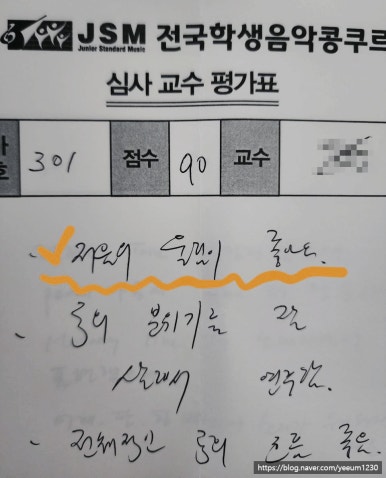 JSM 전국학생음악콩쿠르
Junior Standard Music
심사 교수 평가표
호 301 점수 90 교수
저음의 울림이 좋아요.
- 곡의 분위기를 잘
살려서 연주함.
- 전체적인 곡의 흐름 좋음.
https://blog.naver.com/yeeum1230